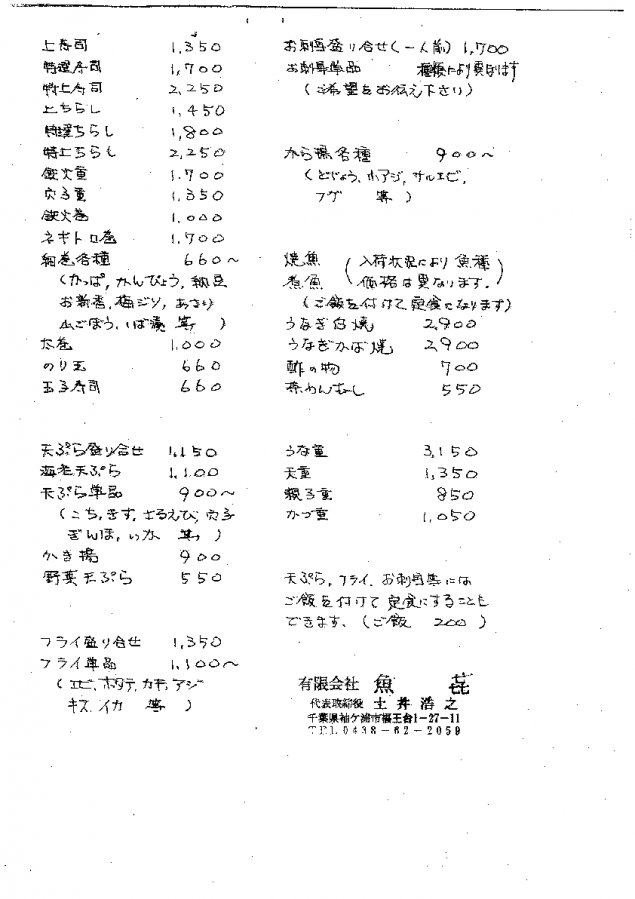 上寿司 1,350
特選寿司 1,700
特上寿司 2,250
上ちらし 1,450
特選ちらし 1,800
特上ちらし 2,250
鉄火重 1,700
穴子重 1,350
鉄火巻 1,000
ネギトロ巻 1,700
細巻各種 660〜
(かっぱ, かんぴょう, 納豆
お新香, 梅ジソ, あさり
山ごぼう, いば漬 等)
太巻 1,000
のり玉 660
玉子寿司 660
天ぷら盛り合せ 1,150
海老天ぷら 1,100
天ぷら単品 900〜
(こち, きす, さるえび, 穴子
ぎんぽ, いか 等)
かき揚 900
野菜天ぷら 550
フライ盛り合せ 1,350
フライ単品 1,100〜
(エビ, ホタテ, カキ, アジ
キス, イカ 等)
お刺身盛り合せ(一人前) 1,700
お刺身単品 種類により異なります
(ご希望をお伝え下さい)
から揚各種 900〜
(どじょう, ホアジ, サルエビ,
フグ 等)
焼魚 (入荷状況により魚種
煮魚 価格は異なります.)
(ご飯を付けて定食になります)
うなぎ白焼 2,900
うなぎかば焼 2,900
酢の物 700
茶わんむし 550
うな重 3,150
天重 1,350
親子重 850
かつ重 1,050
天ぷら, フライ, お刺身等には
ご飯を付けて定食にすることも
できます. (ご飯 200)
有限会社 魚㐂
代表取締役 土井浩之
千葉県袖ケ浦市福王台1-27-11
TEL 0438-62-2059